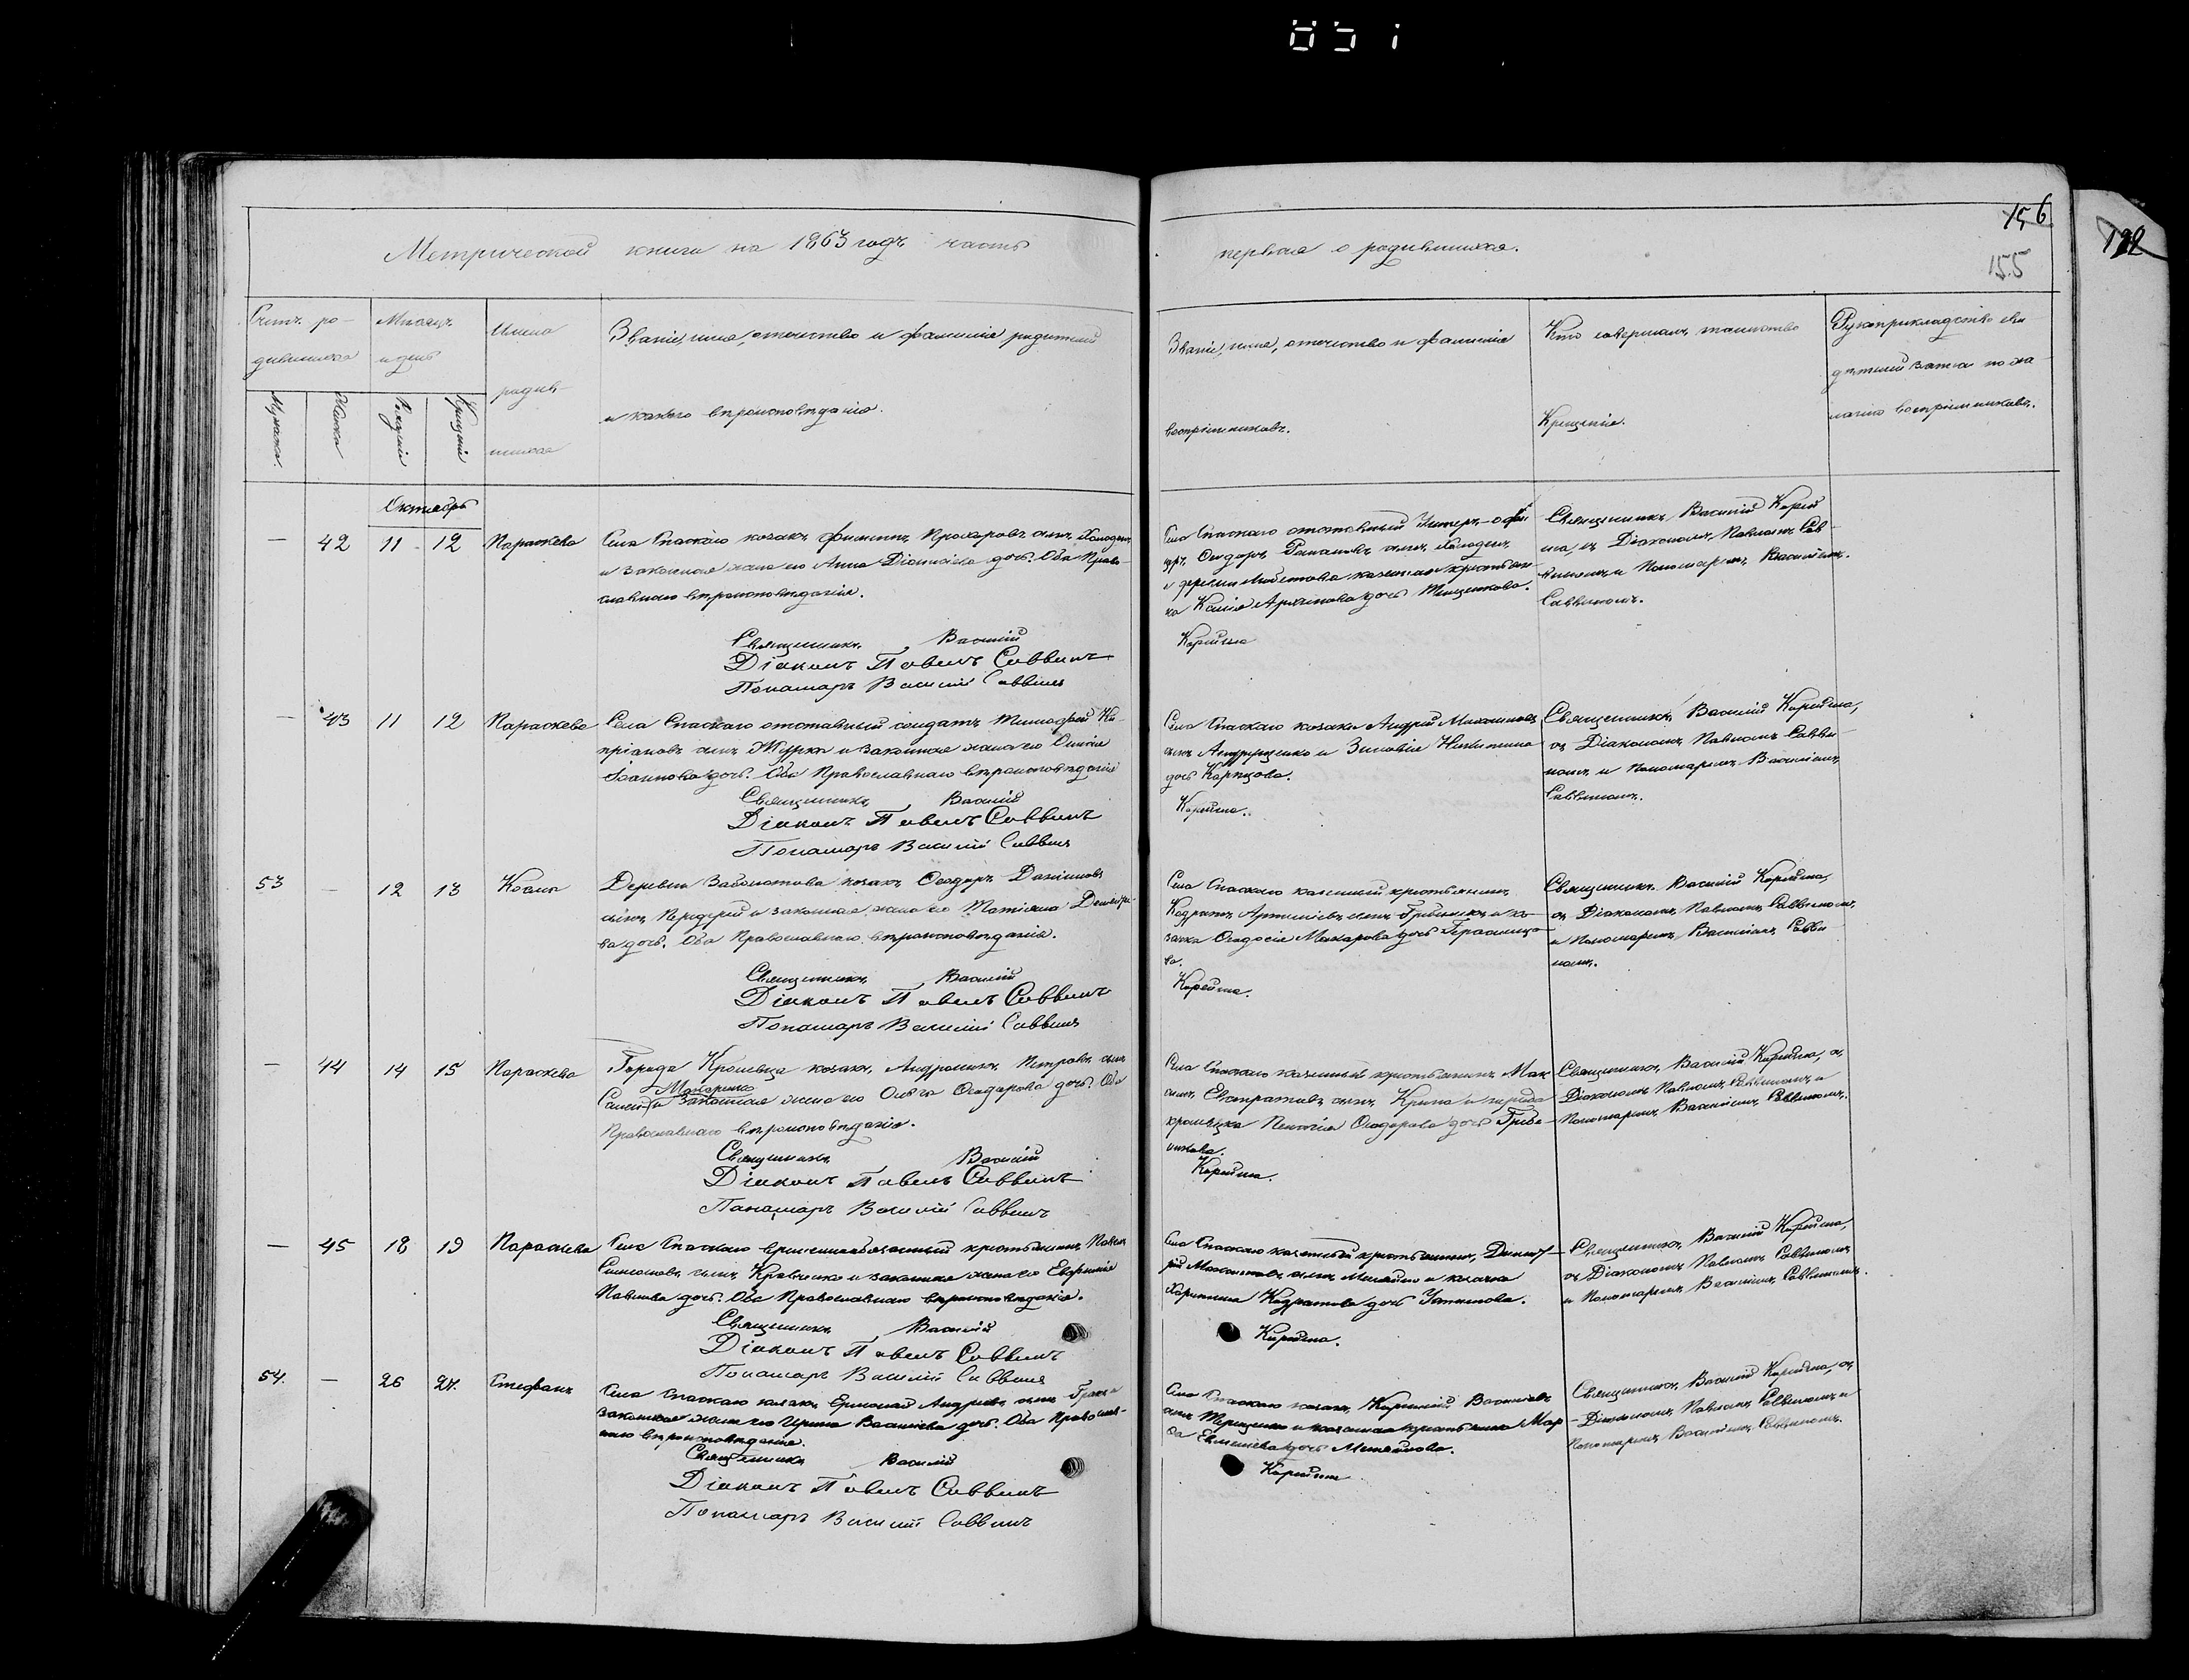 156
155
Метрической книги на 1863 годъ часть
первая о родившихся.
Счетъ ро-
дившихся
Мѣсяцъ
и день
Имена
родив-
шихся
Званіе, имя, отчество и фамилія родителей
и какого вѣроисповѣданія.
Мужеска.
Женска
Рожденія
Крещенія
Званіе, имя, отчество и фамилія
воспріемниковъ.
Кто совершалъ таинство
Крещенія.
Рукоприкладство сви-
дѣтелей записи по же-
ланію воспріемниковъ.
Октябрь
— 42 11 12 Параскева
Села Спаскаго козакъ Филиппъ Прохоровъ сынъ
и законная жена его Анна Діонисіева дочь. Оба Право-
славнаго вѣроисповѣданія.
Священникъ Василій
Діаконъ Павелъ Саввинъ
Пономарь Василій Саввинъ
Села Спаскаго отставный Унтеръ-офи-
церъ Ѳеодоръ сынъ
и деревни казенная крестьян-
ка Архипова дочь
Корейша
Священникъ Василій Корей
ша, съ Діакономъ Павломъ Сав-
винымъ и Пономаремъ Василіемъ
Саввиномъ.
— 43 11 12 Параскева
Села Спаскаго отставный солдатъ Тимофей Ки-
пріановъ сынъ Журка и законная жена его
Іоаннова дочь. Оба Православнаго вѣроисповѣданія
Священникъ Василій
Діаконъ Павелъ Саввинъ
Пономарь Василій Саввинъ
Села Спаскаго козаки Андрей
сынъ Андрущенко и Зиновія Никитина
дочь Карпцова.
Корейша.
Священникъ Василій Корейша,
съ Діакономъ Павломъ Савви-
номъ и Пономаремъ Василіемъ
Саввиномъ.
53 — 12 13 Косма
Деревни Заболотова козакъ Ѳеодоръ Даніиловъ
сынъ и законная жена его Татіана Димитріе-
ва дочь. Оба Православнаго вѣроисповѣданія.
Священникъ Василій
Діаконъ Павелъ Саввинъ
Пономарь Василій Саввинъ
Села Спаскаго казенный крестьянинъ
Кодратъ сынъ и ко-
зачка Ѳеодосія Макарова дочь
ва.
Корейша.
Священникъ Василій Корейша,
съ Діакономъ Павломъ Саввиномъ,
и Пономаремъ Василіемъ Савви-
номъ.
— 44 14 15 Параскева
Города Кролевца козакъ Андроникъ Петровъ сынъ
Макаренко
и законная жена его Ольга Ѳеодорова дочь. Оба
Православнаго вѣроисповѣданія.
Священникъ Василій
Діаконъ Павелъ Саввинъ
Понамарь Василій Саввинъ
Села Спаскаго казенный крестьянинъ
Евстратіевъ сынъ и города
Кролевца Пелагія Ѳеодорова дочь Грибе-
никова.
Корейша.
Священникъ Василій Корейша, съ
Діакономъ Павломъ Саввиномъ и
Пономаремъ Василіемъ Саввиномъ.
— 45 18 19 Параскева
Села Спаскаго временнообязанный крестьянинъ Павелъ
Симеоновъ сынъ Кравченко и законная жена его Евфимія
Павлова дочь. Оба Православнаго вѣроисповѣданія.
Священникъ Василій
Діаконъ Павелъ Саввинъ
Пономарь Василій Саввинъ
Села Спаскаго казенный крестьянинъ Димит-
рій сынъ и козачка
Харитина Кодратова дочь
Корейша.
Священникъ Василій Корейша,
съ Діакономъ Павломъ Саввиномъ
и Пономаремъ Василіемъ Саввиномъ.
54. — 26 27. Стефанъ
Села Спаскаго козакъ Ермолай Андреевъ сынъ
законная жена его Ирина Василіева дочь. Оба Православ-
наго вѣроисповѣданія.
Священникъ Василій
Діаконъ Павелъ Саввинъ
Пономарь Василій Саввинъ
Села Спаскаго козакъ Корнилій Василіевъ
сынъ Терещенко и казенная крестьянка Мар-
ѳа дочь
Корейша
Священникъ Василій Корейша, съ
Діакономъ Павломъ Саввиномъ и
Пономаремъ Василіемъ Саввиномъ.